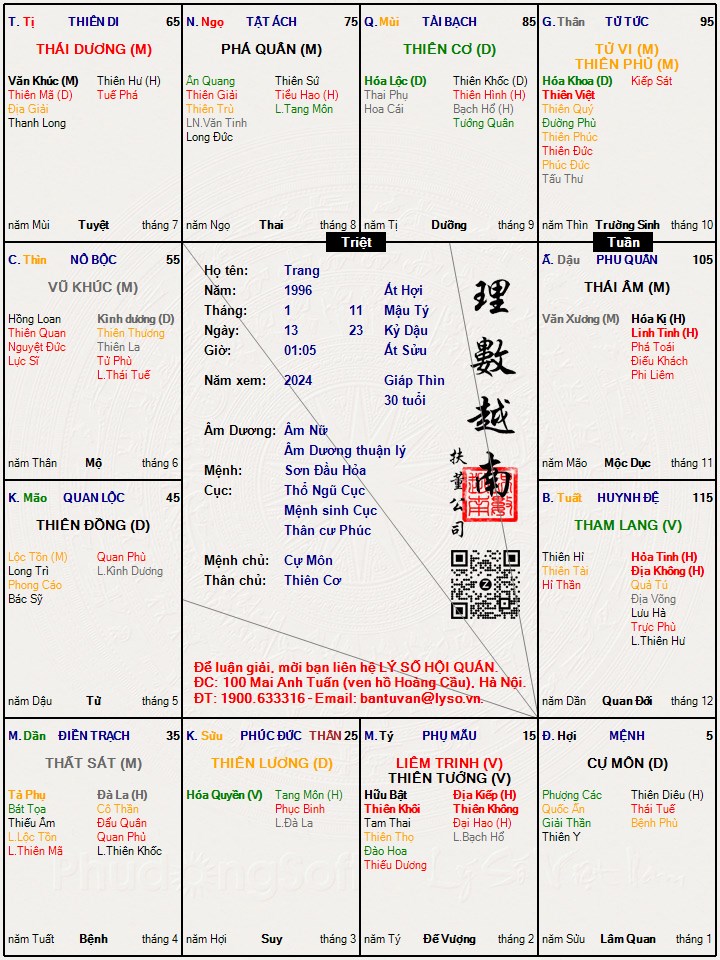 T. Tị THIÊN DI 65
THÁI DƯƠNG (M)
Văn Khúc (M) Thiên Hư (H)
Thiên Mã (D) Tuế Phá
Địa Giải
Thanh Long
năm Mùi Tuyệt tháng 7
N. Ngọ TẬT ÁCH 75
PHÁ QUÂN (M)
Ân Quang Thiên Sứ
Thiên Giải Tiểu Hao (H)
Thiên Trù L.Tang Môn
LN.Văn Tinh
Long Đức
năm Ngọ Thai tháng 8
Q. Mùi TÀI BẠCH 85
THIÊN CƠ (D)
Hóa Lộc (D) Thiên Khốc (D)
Thai Phụ Thiên Hình (H)
Hoa Cái Bạch Hổ (H)
Tướng Quân
năm Tị Dưỡng tháng 9
G. Thân TỬ TỨC 95
TỬ VI (M)
THIÊN PHỦ (M)
Hóa Khoa (D) Kiếp Sát
Thiên Việt
Thiên Quý
Đường Phù
Thiên Phúc
Thiên Đức
Phúc Đức
Tấu Thư
năm Thìn Trường Sinh tháng 10
Triệt
Tuần
C. Thìn NÔ BỘC 55
VŨ KHÚC (M)
Hồng Loan Kình dương (D)
Thiên Quan Thiên Thương
Nguyệt Đức Thiên La
Lực Sĩ Tử Phù
L.Thái Tuế
năm Thân Mộ tháng 6
Họ tên: Trang
Năm: 1996 Ất Hợi
Tháng: 1 11 Mậu Tý
Ngày: 13 23 Kỷ Dậu
Giờ: 01:05 Ất Sửu
Năm xem: 2024 Giáp Thìn
30 tuổi
Âm Dương: Âm Nữ
Âm Dương thuận lý
Mệnh: Sơn Đầu Hỏa
Cục: Thổ Ngũ Cục
Mệnh sinh Cục
Thân cư Phúc
Mệnh chủ: Cự Môn
Thân chủ: Thiên Cơ
理數越南
扶董公司
Để luận giải, mời bạn liên hệ LÝ SỐ HỘI QUÁN.
ĐC: 100 Mai Anh Tuấn (ven hồ Hoàng Cầu), Hà Nội.
ĐT: 1900.633316 - Email: bantuvan@lyso.vn.
Ấ. Dậu PHU QUÂN 105
THÁI ÂM (M)
Văn Xương (M) Hóa Kị (H)
Linh Tinh (H)
Phá Toái
Điếu Khách
Phi Liêm
năm Mão Mộc Dục tháng 11
K. Mão QUAN LỘC 45
THIÊN ĐỒNG (D)
Lộc Tồn (M) Quan Phù
Long Trì L.Kình Dương
Phong Cáo
Bác Sỹ
năm Dậu Tử tháng 5
B. Tuất HUYNH ĐỆ 115
THAM LANG (V)
Thiên Hỉ Hỏa Tinh (H)
Thiên Tài Địa Không (H)
Hỉ Thần Quả Tú
Địa Võng
Lưu Hà
Trực Phù
L.Thiên Hư
năm Dần Quan Đới tháng 12
M. Dần ĐIỀN TRẠCH 35
THẤT SÁT (M)
Tả Phụ Đà La (H)
Bát Tọa Cô Thần
Thiếu Âm Đẩu Quân
L.Lộc Tồn Quan Phủ
L.Thiên Mã L.Thiên Khốc
năm Tuất Bệnh tháng 4
K. Sửu PHÚC ĐỨC THÂN 25
THIÊN LƯƠNG (D)
Hóa Quyền (V) Tang Môn (H)
Phục Binh
L.Đà La
năm Hợi Suy tháng 3
M. Tý PHỤ MẪU 15
LIÊM TRINH (V)
THIÊN TƯỚNG (V)
Hữu Bật Địa Kiếp (H)
Thiên Khôi Thiên Không
Tam Thai Đại Hao (H)
Thiên Thọ L.Bạch Hổ
Đào Hoa
Thiếu Dương
năm Tý Đế Vượng tháng 2
Đ. Hợi MỆNH 5
CỰ MÔN (D)
Phượng Các Thiên Diêu (H)
Quốc Ấn Thái Tuế
Giải Thần Bệnh Phù
Thiên Y
năm Sửu Lâm Quan tháng 1